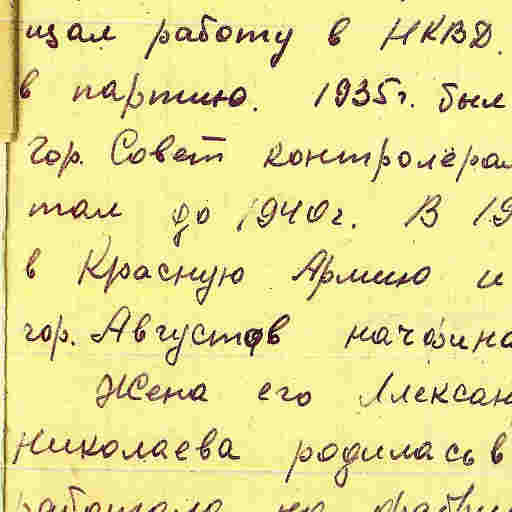 щал работу в НКВД.
в партию. 1935г. был
Гор. Совет контролёрам
тал до 1940г. В 19
в Красную Армию и
гор. Августов начфина
Жена его Алексан
Николаева родилась в
работала на фабри